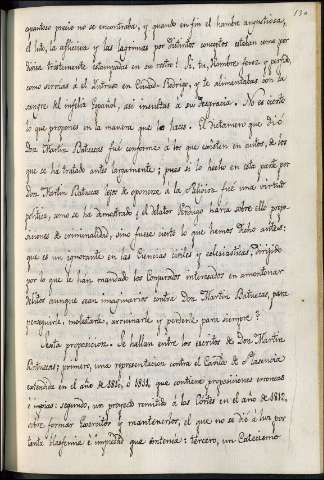 130
quantioso precio no se encontraba, y quando en fin el hambre angustiosa,
el luto, la afliccion y las lagrimas por distintos conceptos estaban como por
divisa tristemente estampadas en su rostro? Si, tu, hombre feroz y perfido,
como sorvias a el distrito en Ciudad Rodrigo, y te alimentabas con la
sangre del infeliz Español, asi insultas a su desgracia. No es cierto
lo que propones en la manera que lo haces. El dictamen que dió
Don Martin Batuecas fué conforme a los que existen en autos, de los
que se ha tratado antes largamente; pues si lo hecho en esta parte por
Don Martin Batuecas lejos de oponerse á la fué una virtud
politica, como se ha demostrado; el delator Verdugo haria sobre ello propo-
siciones de criminalidad, sino fuese cierto lo que hemos dicho antes:
que es un ignorante en las Ciencias civiles y eclesiasticas, dirijido
por lo que le han mandado los Conjurados interesados en amontonar
delitos aunque sean imaginarios contra Don Martin Batuecas, para
perseguirle, molestarle, arruinarle y perderle para siempre?
Sexta proposicion. Se hallan entre los escritos de Don Martin
Batuecas; primero, una representacion contra el Cavildo de Plasencia
estendida en el año de 1810, ó 1811, que contiene proposiciones erroneas
é impias: segundo, un proyecto remitido á las Cortes en el año de 1812,
sobre formar Exercitos y mantenerlos, el que no se dió á luz por
tanta blasfemia é impiedad que contenia: tercero, un Catecismo